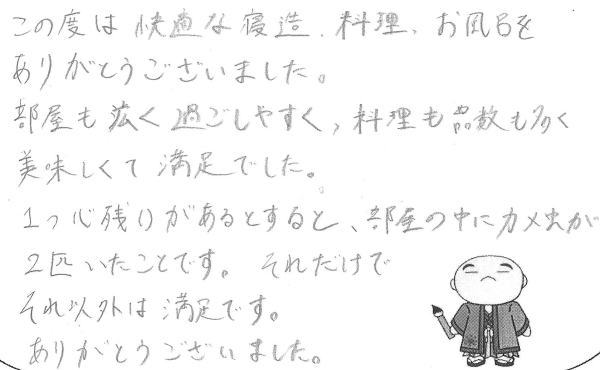 この度は快適な寝造、料理、お風呂を
ありがとうございました。
部屋も広く過ごしやすく、料理も品数も多く
美味しくて満足でした。
1つ心残りがあるとすると、部屋の中にカメ虫が
2匹いたことです。それだけで
それ以外は満足です。
ありがとうございました。